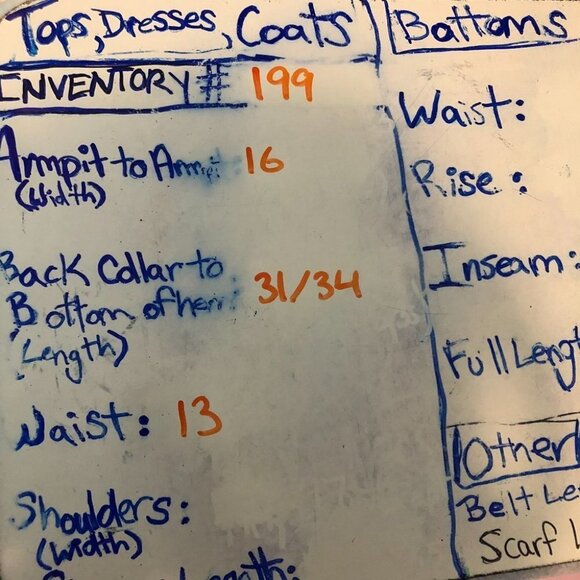 Tops, Dresses, Coats
INVENTORY # 199
Armpit to Armpit 16
(Width)
Back Collar to
Bottom of hem: 31/34
(Length)
Waist: 13
Shoulders:
(Width)
Bottoms
Waist:
Rise:
Inseam:
Full Lengt
Other
Belt Le
Scarf L